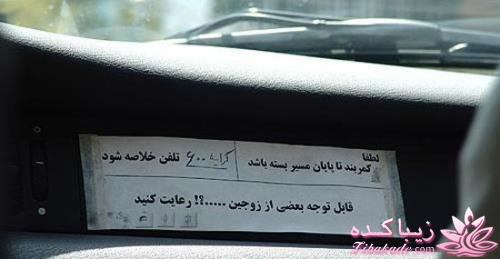 لطفا
کمربند تا پایان مسیر بسته باشد
کرایه ۶۰۰
تلفن خلاصه شود
قابل توجه بعضی از زوجین .....؟! رعایت کنید
زیباکده
Zibakade.com